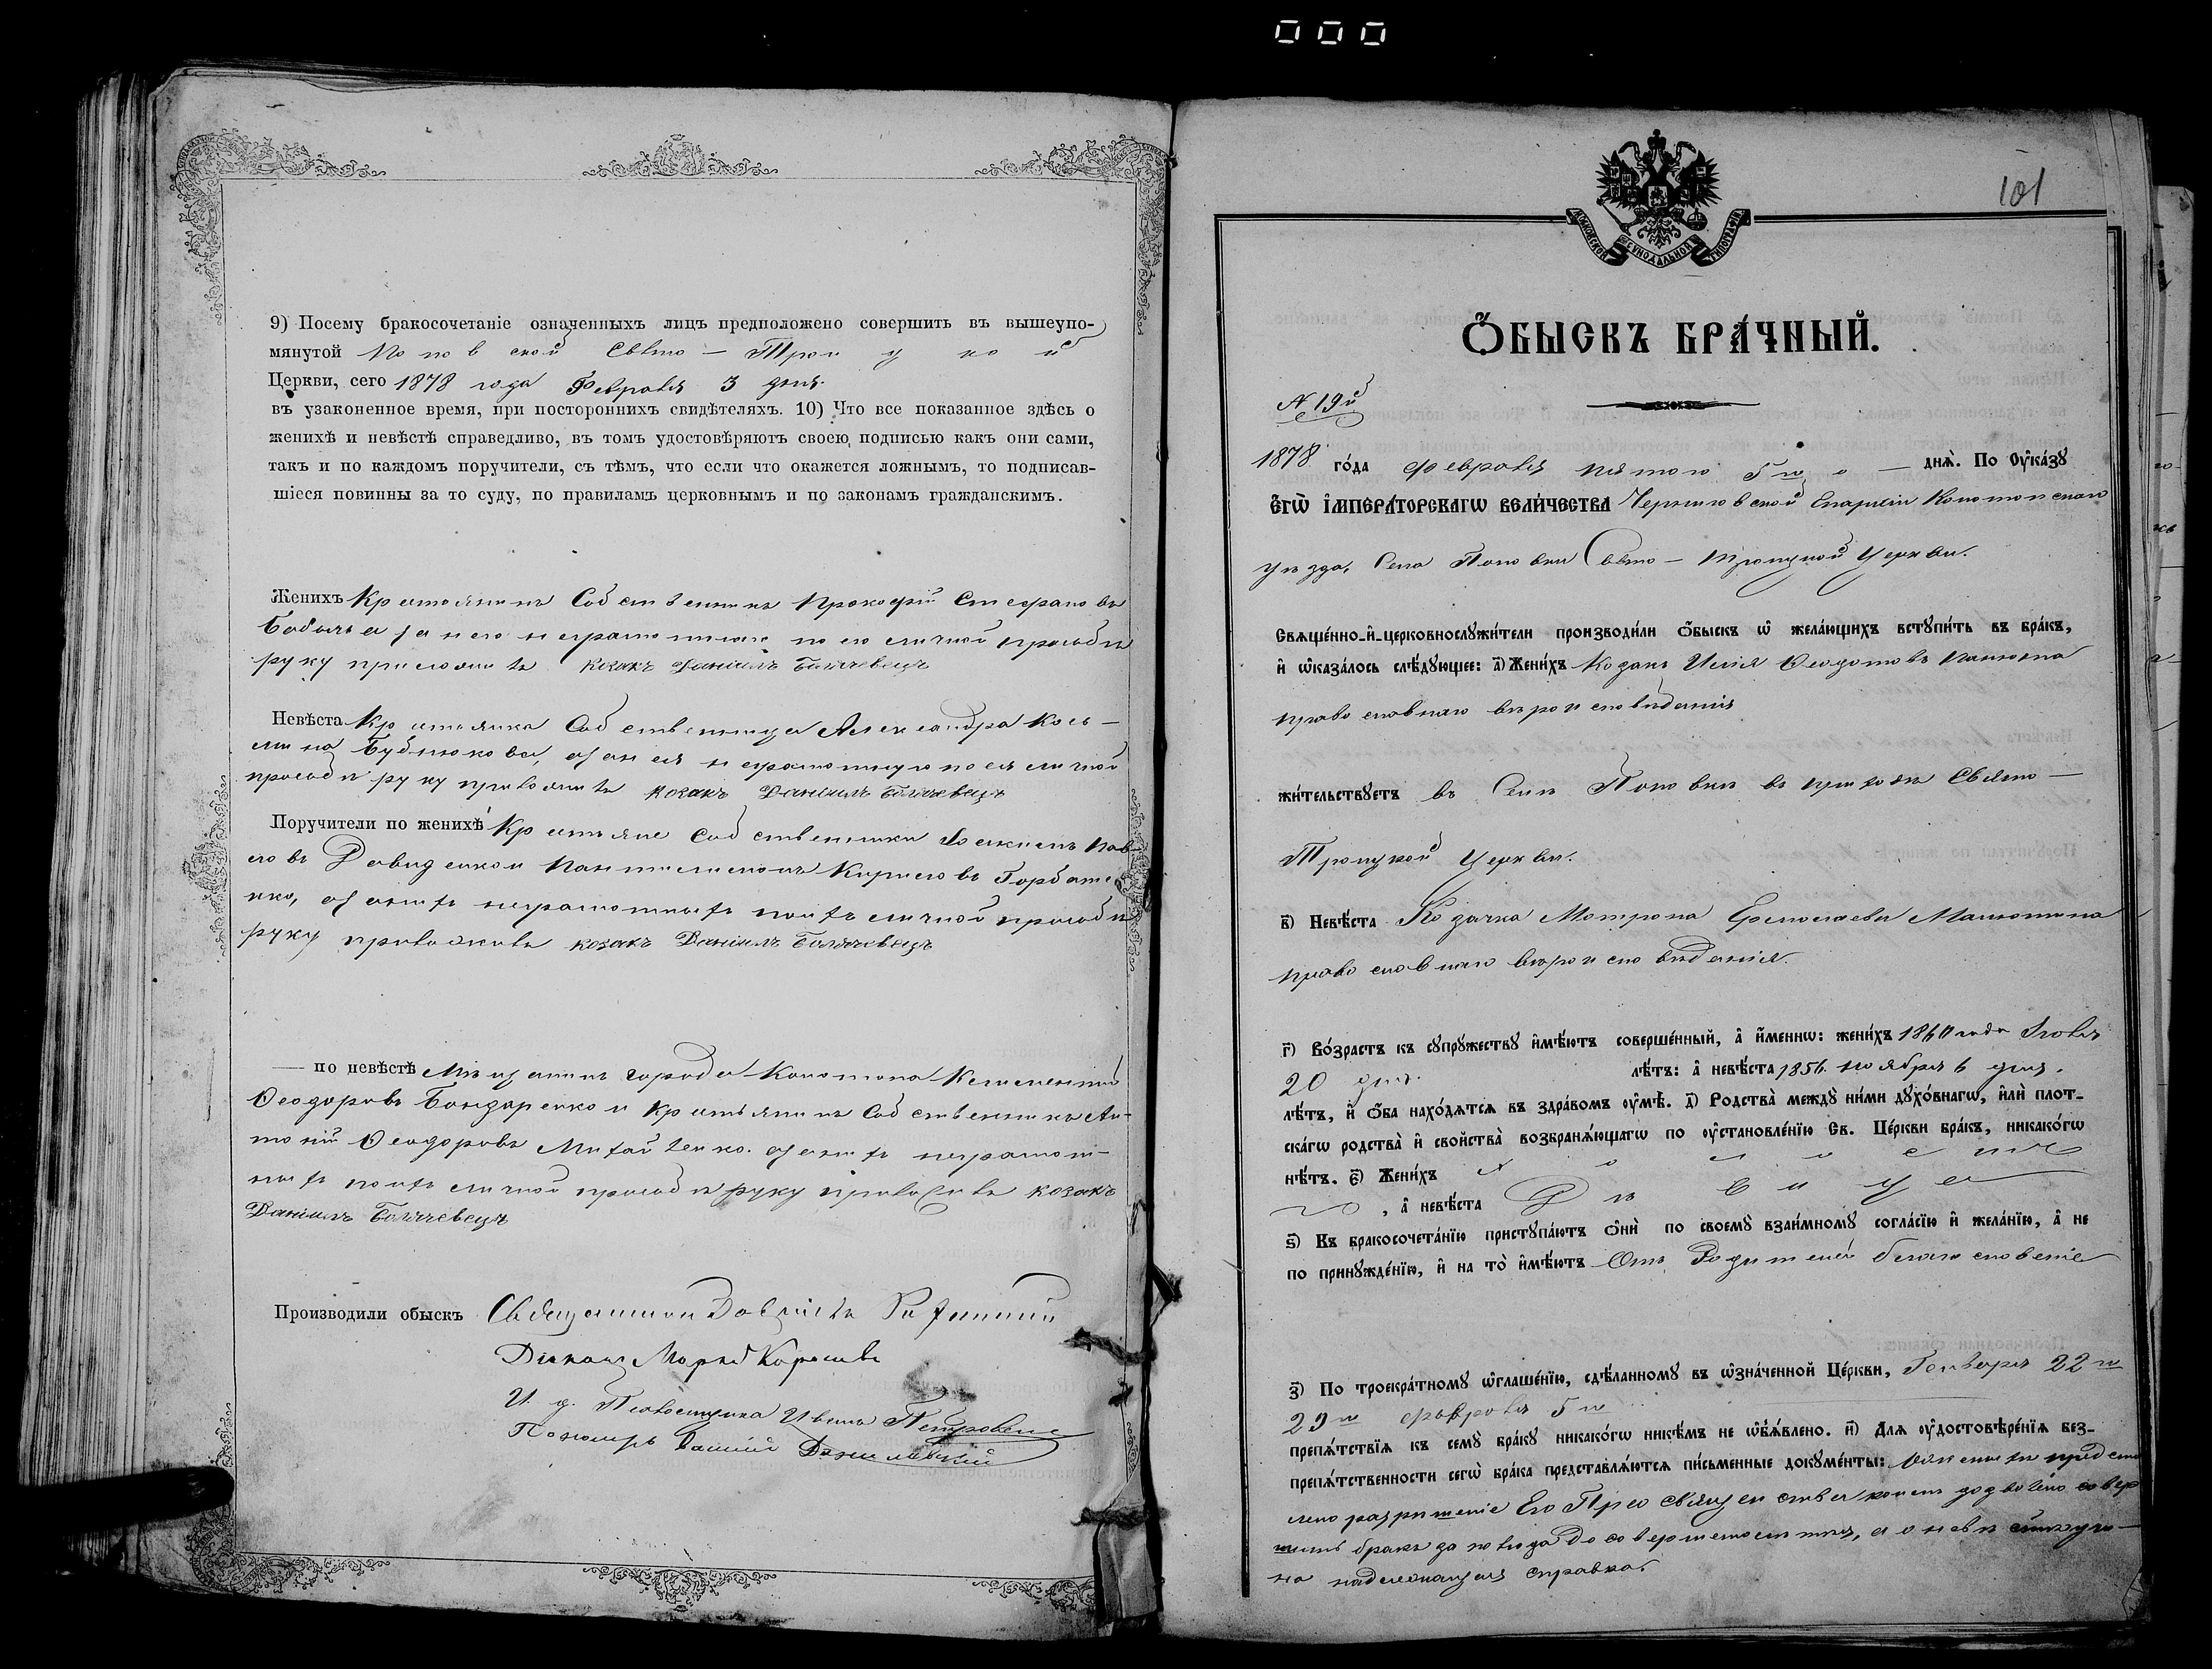 000
9) Посему бракосочетаніе означенныхъ лицъ предположено совершить въ вышеупо-
мянутой Поповской Свято-Троицкой
Церкви, сего 1878 года Февраля 3 дня.
въ узаконенное время, при постороннихъ свидѣтеляхъ. 10) Что все показанное здѣсь о
женихѣ и невѣстѣ справедливо, въ томъ удостовѣряютъ своею подписью какъ они сами,
такъ и по каждомъ поручители, съ тѣмъ, что если что окажется ложнымъ, то подписав-
шіеся повинны за то суду, по правиламъ церковнымъ и по законамъ гражданскимъ.
Женихъ Крестьянинъ Собственникъ Прокофій Стефановъ
а за него неграмотнаго по его личной прозьбѣ
руку приложилъ козакъ Даніилъ
Невѣста Крестьянка Собственница Александра Кось-
мина а за нея неграмотную по ея личной
прозьбѣ руку приложилъ козакъ Даніилъ
Поручители по женихѣ Крестьяне Собственники Іоакимъ Пав-
ловъ Давиденко и Пантелеимонъ Кириловъ Горбате
нко, а за нихъ неграмотныхъ по ихъ личной прозьбѣ
руку приложилъ козакъ Даніилъ
— по невѣстѣ Мѣщанинъ города Конотопа
Ѳеодоровъ Бондаренко и Крестьянинъ Собственникъ Ан-
тоній Ѳеодоровъ а за нихъ неграмот-
ныхъ по ихъ личной прозьбѣ руку приложилъ козакъ
Даніилъ
Производили обыскъ Священникъ
Діаконъ Марко
И. д. Псаломщика Иванъ Петровскій
Пономарь Данилевскій
101
МОСКОВСКОЙ СѴНОДАЛЬНОЙ ТИПОГРАФІИ
Ѻ҆БЫСКЪ БРА́ЧНЫЙ.
N 19й
1878 го́да Февраля пятого 5го — днѧ̀. По Оу҆ка́зꙋ
Є҆ГѠ̀ І҆МПЕРА́ТОРСКАГѠ ВЕЛИ́ЧЕСТВА Черниговской Епархіи Конотопскаго
уѣзда, Села Поповки Свято-Троицкой Церкви.
Свѧще́нно-и҆-церковнослꙋжи́тели производи́ли ѻ҆́быскъ ѡ҆ жела́ющихъ встꙋпи́ть въ бра́къ,
и҆ ѡ҆каза́лось слѣ́дꙋющее: а҃) Жени́хъ Козакъ Илія Ѳеодотовъ
православнаго вѣроисповѣданія
жи́тельствꙋетъ въ Селѣ Поповкѣ въ приходѣ Свято-
Троицкой Церкви.
в҃) Невѣ́ста Козачка Матрона
православнаго вѣроисповѣданія.
г҃) Во́зрастъ къ сꙋпрꙋ́жествꙋ и҆мѣ́ютъ соверше́нный, а҆ и҆́меннѡ: жени́хъ 1860 года
20 дня. лѣ́тъ: а҆ невѣ́ста 1856 ноября 6 дня.
лѣ́тъ, и҆ ѻ҆́ба нахо́дѧтсѧ въ здра́вомъ оу҆мѣ̀. д҃) Родства̀ междꙋ̀ ни́ми дꙋхо́внагѡ, и҆лѝ плот-
ска́гѡ родства̀ и҆ сво́йства̀ возбранѧ́ющагѡ по оу҆становле́нїю Св. Це́ркви бра́къ, никако́гѡ
нѣ́тъ. є҃) Жени́хъ холосте
, а҆ невѣ́ста Дѣвица
ѕ҃) Къ бракосочета́нїю пристꙋпа́ютъ ѻ҆нѝ по своемꙋ̀ взаи́мномꙋ согла́сїю и҆ жела́нїю, а҆ не
по принꙋжде́нїю, и҆ на то̀ и҆мѣ́ютъ Отъ Родителей благословеніе
з҃) По троекра́тномꙋ ѡ҆глаше́нїю, сдѣ́ланномꙋ въ ѡ҆зна́ченной Це́ркви, Генваря 22го
29го февраля 5го
препѧ́тствїѧ къ семꙋ̀ бра́кꙋ никако́гѡ никѣ́мъ не ѡ҆б̾ѧ́влено. и҃) Длѧ оу҆достовѣре́нїѧ без-
препѧ́тственности сегѡ̀ бра́ка представлѧ́ютсѧ пи́сьменные докꙋме́нты: О женихѣ предстa
лено разрѣшеніе Его Преосвященства коимъ дозволено совер
шить бракъ до совершенолѣтія, а о невѣстѣ
на надлежащая справка.